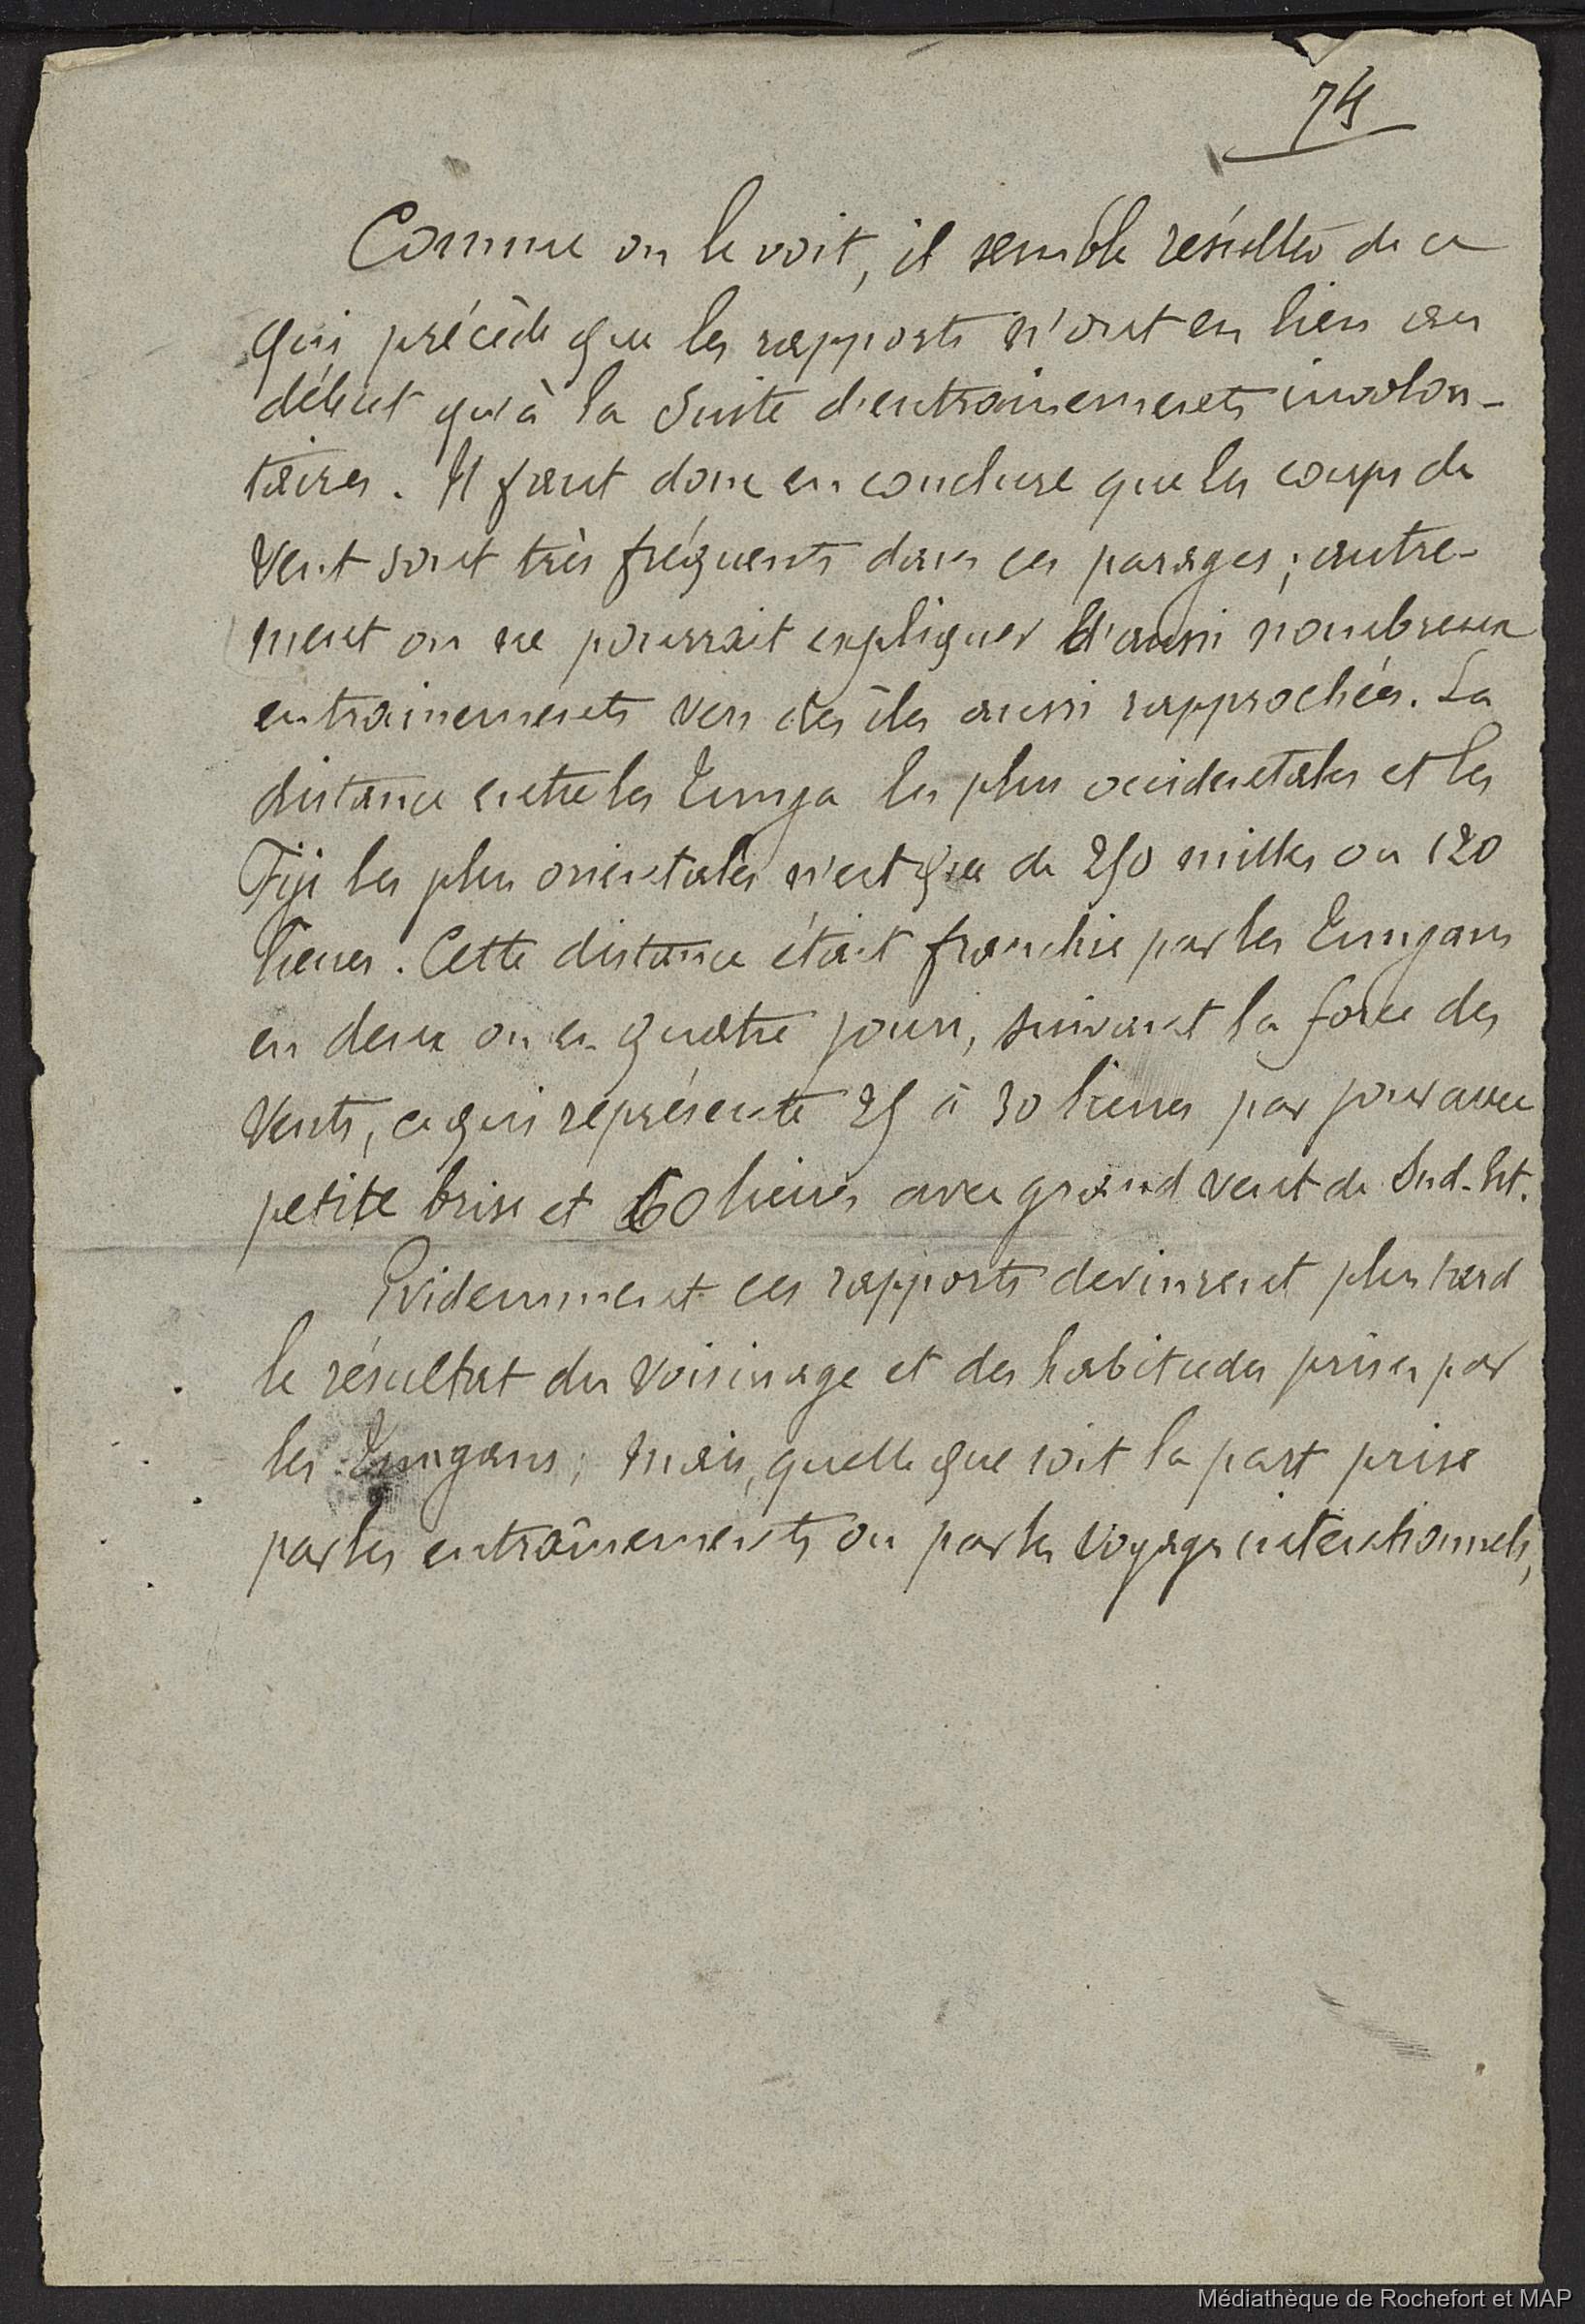 74
Comme on le voit, il semble résulter de ce
qui précède que les rapports n'ont eu lieu au
début qu'à la suite d'entrainements involon-
taires. Il faut donc en conclure que les coups de
vent sont très fréquents dans ces parages; autre-
ment on ne pourrait expliquer d'aussi nombreux
entrainements vers des îles aussi rapprochées. La
distance entre les Tunga les plus occidentales et les
Fiji les plus orientales n'est que de 250 milles ou 120
lieues. Cette distance était franchie par les Tungans
en deux ou en quatre jours, suivant la force des
vents, ce qui représente 25 à 30 lieues par jour avec
petite brise et 60 lieues avec grand vent de Sud-Est.
Evidemment ces rapports devinrent plus tard
le résultat du voisinage et des habitudes prises par
les Tungans; mais, quelle que soit la part prise
par les entraînements ou par les voyages intentionnels,
Médiathèque de Rochefort et MAP